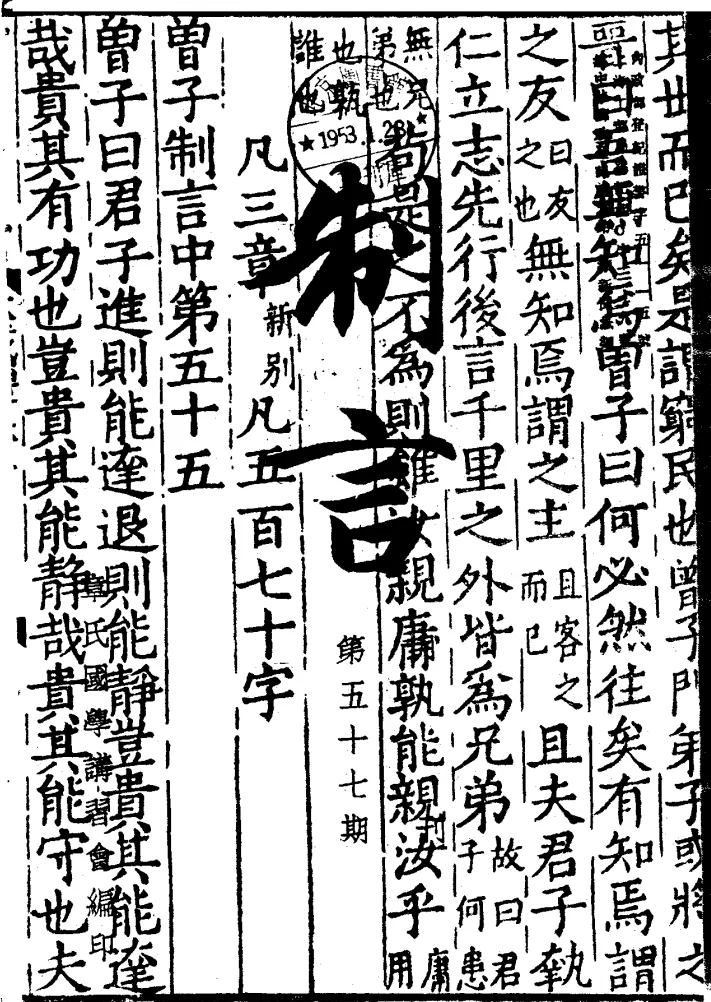 其世而已矣是謂窮民也曾子門弟子或將之
曰吾無知焉曾子曰何必然往矣有知焉謂
之友曰友之也無知焉謂之主且客之而已且夫君子執
仁立志先行後言千里之外皆為兄弟故曰君子何患
無兄弟也苟是之不為則雖汝親庸孰能親汝乎庸用
也孰誰也
凡三章新別凡五百七十字
曾子制言中第五十五
曾子曰君子進則能達退則能靜豈貴其能達
哉貴其有功也豈貴其能靜哉貴其能守也夫
制言
第五十七期
章氏國學講習會編印
★1953.1.28★